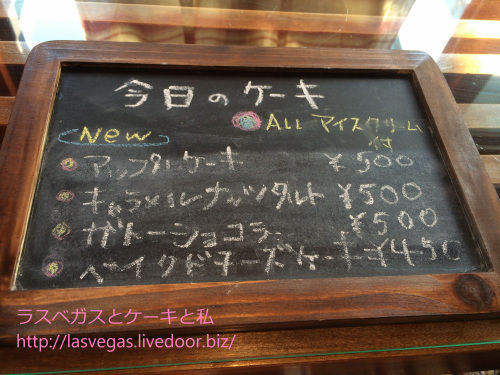 今日のケーキ
ALL アイスクリーム付
New
アップルケーキ ¥500
キャラメルナッツタルト ¥500
ガトーショコラ ¥500
ベイクドチーズケーキ ¥450
ラスベガスとケーキと私
http://lasvegas.livedoor.biz/